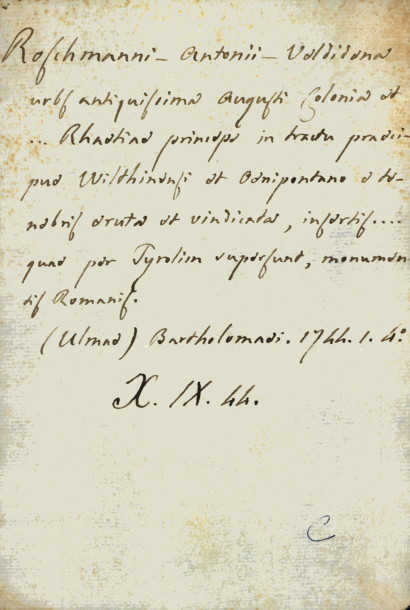 Roschmanni - Antonii - Veldidena
urbs antiquissima Augusti Colonia et
... Rhaetiae princeps in tractu praeci-
puo Wilthinensi et Oenipontano e te-
nebris eruta et vindicata, insertis....
quae per Tyrolim supersunt, monumen-
tis Romanis.
(Ulmae) Bartholomaei. 1744. 1. 4º
X. IX. 44.
C